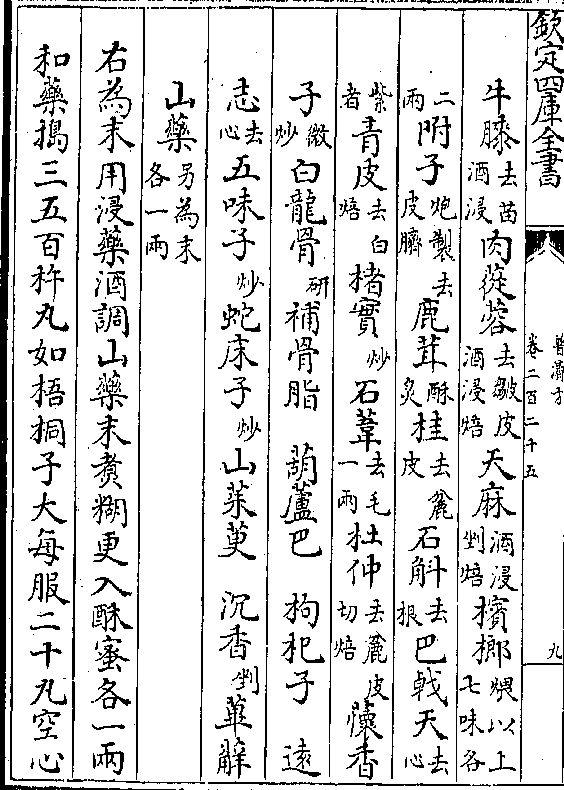 欽定四庫全書
普濟方
卷二百二十五
九
牛膝去苗酒浸肉蓯蓉去皺皮酒浸焙天麻酒浸剉焙檳榔煨以上七味各
二兩附子炮製去皮臍鹿茸酥炙桂去麄皮石斛去根巴戟天去心
紫者青皮去白焙楮實炒石葦去毛一兩杜仲去麄皮切焙懷香
子微炒白龍骨研補骨脂 葫蘆巴 枸杞子 遠
志去心五味子炒蛇床子炒山茱萸 沉香剉萆薢
山藥另為末各一兩
右為末用浸藥酒調山藥末煑糊更入酥蜜各一兩
和藥搗三五百杵丸如梧桐子大每服二十丸空心